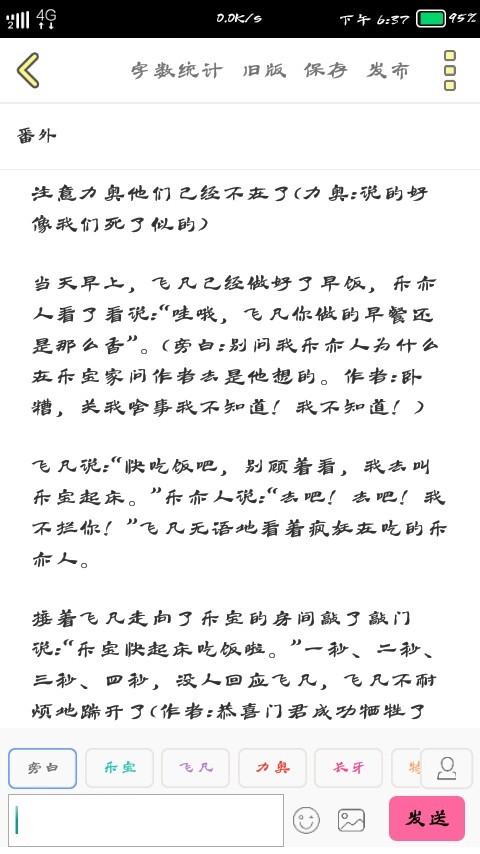 2 4G 0.0K/s 下午 6:37 95%
字数统计 旧版 保存 发布
番外
注意力奥他们已经不在了(力奥:说的好
像我们死了似的)
当天早上，飞凡已经做好了早饭，乐亦
人看了看说:“哇哦，飞凡你做的早餐还
是那么香”。(旁白:别问我乐亦人为什么
在乐宝家问作者去是他想的。作者:卧
糟，关我啥事我不知道！我不知道！)
飞凡说:“快吃饭吧，别顾着看，我去叫
乐宝起床。”乐亦人说:“去吧！去吧！我
不拦你！”飞凡无语地看着疯妖在吃的乐
亦人。
接着飞凡走向了乐宝的房间敲了敲门
说:“乐宝快起床吃饭啦。”一秒、二秒、
三秒、四秒，没人回应飞凡，飞凡不耐
烦地踹开了(作者:恭喜门君成功牺牲了
旁白 乐宝 飞凡 力奥 长牙
发送